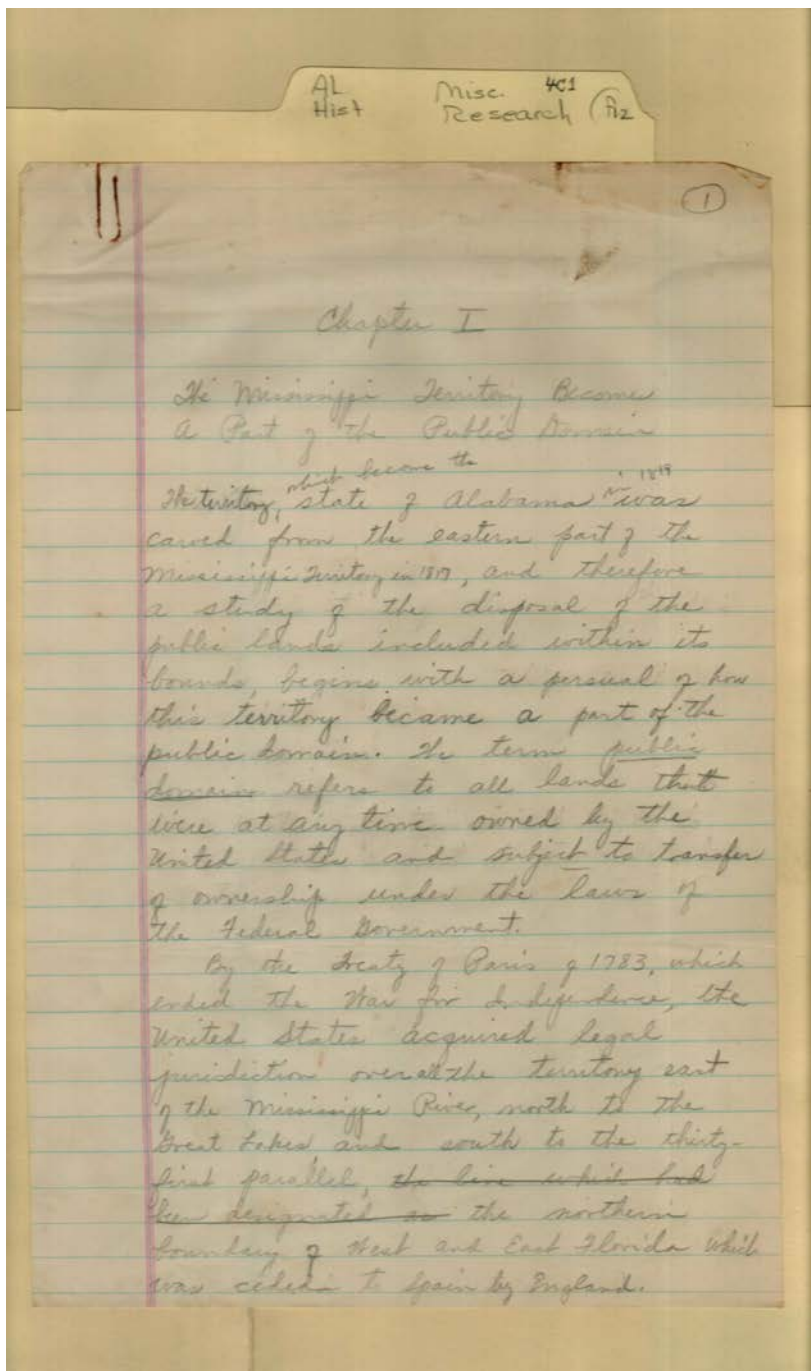 AL Misc. 4C1
Hist Research Fl2
1
Chapter I
The Mississippi Territory Become
A Part of the Public Domain
which become the in 1819
The territory, state of Alabama was
carved from the eastern part of the
Mississippi Territory in 1819, and therefore
a study of the disposal of the
public lands included within its
bounds, begins with a persual of how
this territory became a part of the
public domain. The term public
domain refers to all lands that
were at any time owned by the
United States and subject to transfer
of ownership under the laws of
the Federal Government.
By the Treaty of Paris of 1783, which
ended the War for Independence, the
United States acquired legal
jurisdiction over all the territory east
of the Mississippi River, north to the
Great Lakes, and south to the thirty-
first parallel, the line which had
been designated as the northern
boundary of West and East Florida which
was ceded to Spain by England.